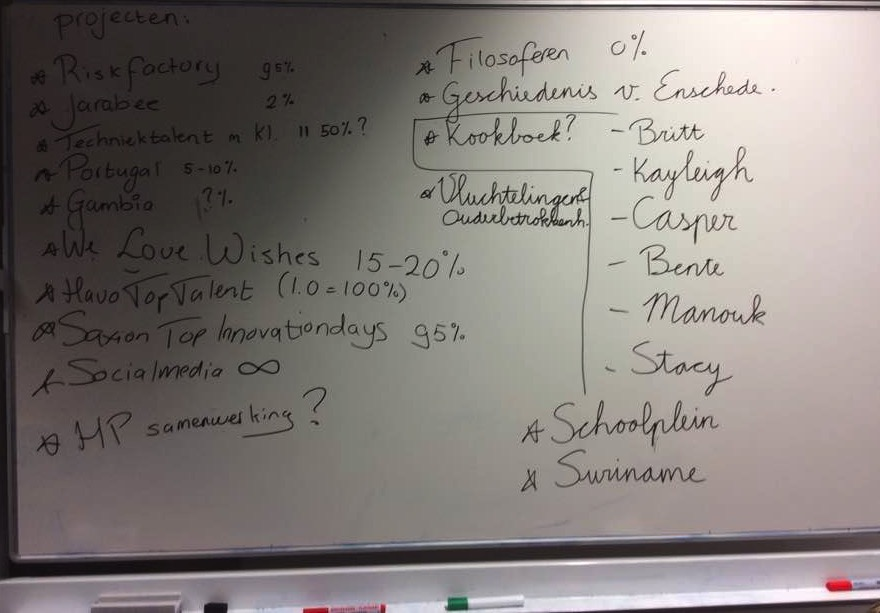 projecten:
* Riskfactory 95%
* Jarabee 2%
* Techniektalent in Kl. 11 50%?
* Portugal 5-10%
* Gambia ?%
* We Love Wishes 15-20%
* Havo TopTalent (1.0=100%)
* Saxion Top Innovationdays 95%
* Socialmedia ∞
* HP samenwerking?
* Filosoferen 0%
* Geschiedenis v. Enschede.
* Kookboek?
- Britt
- Kayleigh
- Casper
- Bente
- Manouk
- Stacy
* Vluchtelingen
Ouderbetrokkenh.
* Schoolplein
* Suriname